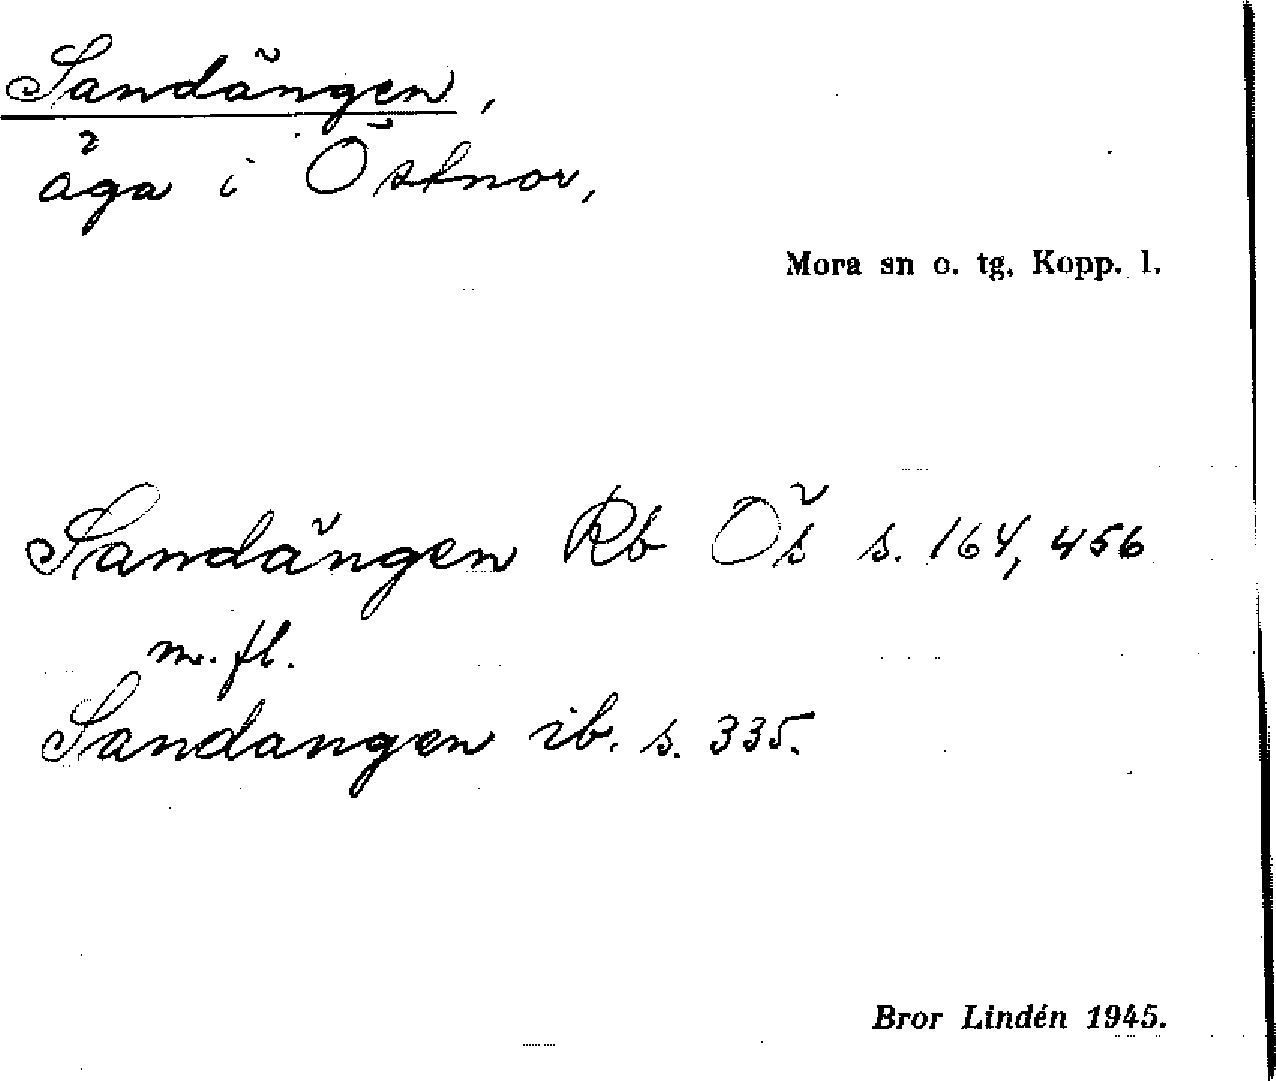 Sandängen,
äga i Östnor,
Mora sn o. tg, Kopp. l.
Sandängen Rb Ös s. 164, 456
m. fl.
Sandangen ib. s. 335.
Bror Lindén 1945.